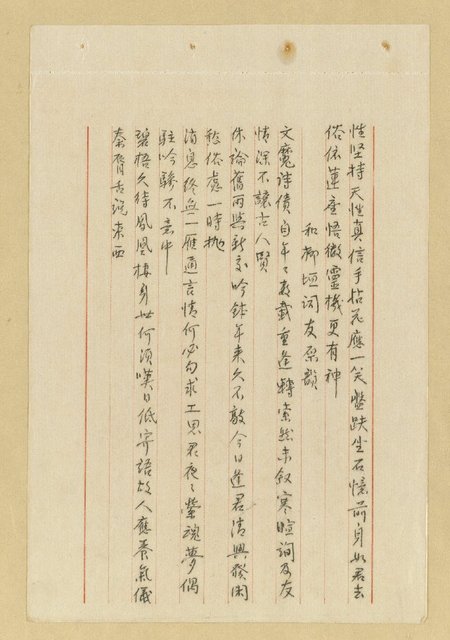 性坚持天性真信手拈花應一笑盤趺坐石憶前身如君去
俗依蓮座悟徹靈機更有神
和柳垣詞友原韻
文魔詩債自年々數載重逢轉索然未敘寒暄詢及友
情深不讓古人賢
休論舊雨與新交吟鉢年來久不敲今日逢君清興發閑
愁俗慮一時拋
消息終無一雁通言情何必句求工思君夜々縈魂夢偶
駐吟驂不意中
碧梧久待鳳凰棲身世何須嘆日低寄語故人應養氣儀
秦脣舌說東西